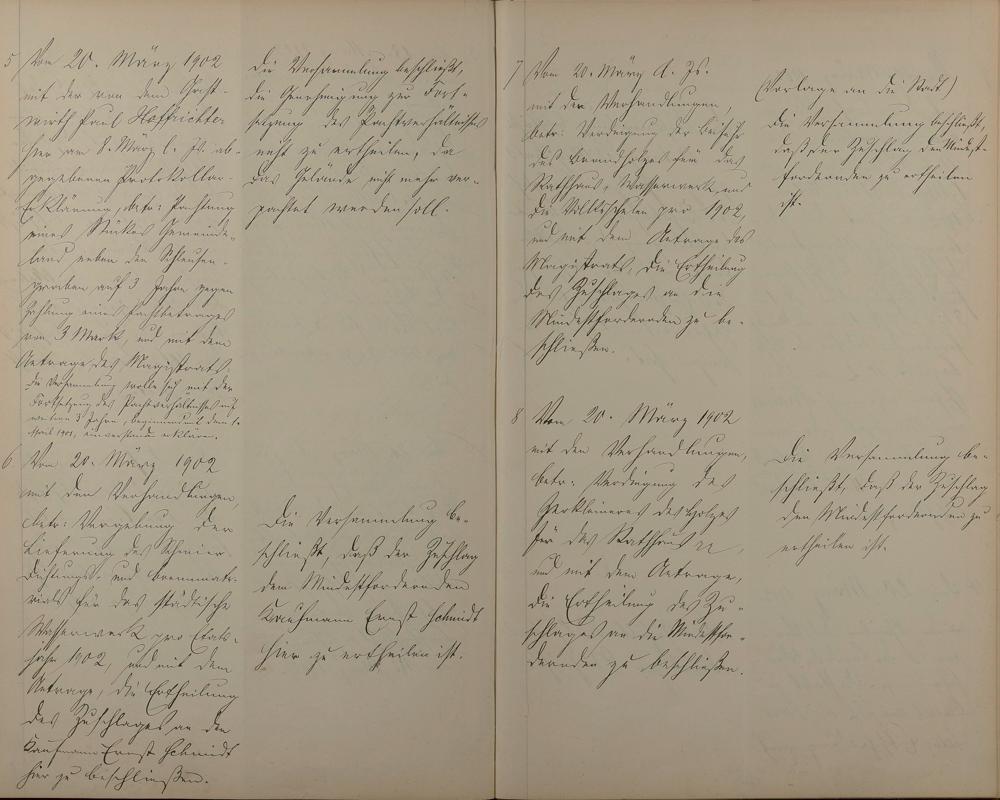 5 Vom 20. März 1902
mit der von dem Gast-
wirth Paul Hoffrichter
hier am 8. März l. Js. ab-
gegebenen Protokollar-
Erklärung, betr: Pachtung
eines Stückes Gemeinde-
land neben den Schleusen-
graben auf 3 Jahre gegen
Zahlung eines Pachtbetrages
von 3 Mark, und mit dem
Antrage des Magistrats:
die Versammlung wolle sich mit der
Fortsetzung des Pachtverhältnisses auf
weitere 3 Jahre, beginnend mit dem 1.
April 1902, einverstanden erklären.
Die Versammlung beschließt,
die Genehmigung zur Fort-
setzung des Pachtverhältnisses
nicht zu ertheilen, da
das Gelände nicht mehr ver-
pachtet werden soll.
6. Vom 20. März 1902
mit den Verhandlungen,
betr: Vergebung der
Lieferung des Schmier-
Dichtungs- und Brennmate-
rials für das städtische
Wasserwerk pro Etats-
jahr 1902, und mit dem
Antrage, die Ertheilung
des Zuschlages an den
Kaufmann Ernst Schmidt
hier zu beschließen.
Die Versammlung be-
schließt, daß der Zuschlag
dem Mindestfordernden
Kaufmann Ernst Schmidt
hier zu ertheilen ist.
7 Vom 20. März d. Js.
mit den Verhandlungen,
betr: Verdingung der Beifuhr
des Brennholzes für das
Rathhaus, Wasserwerk und
die Volksschulen pro 1902,
und mit dem Antrage des
Magistrats, die Ertheilung
des Zuschlages an die
Mindestfordernden zu be-
schließen.
(Vorlage an die Stadt)
Die Versammlung beschließt,
daß der Zuschlag den Mindest-
fordernden zu ertheilen
ist.
8 Vom 20. März 1902
mit den Verhandlungen,
betr: Verdingung des
Zerkleinerns des Holzes
für das Rathhaus
und mit dem Antrage,
die Ertheilung des Zu-
schlages an die Mindestfor-
dernden zu beschließen.
Die Versammlung be-
schließt, daß der Zuschlag
den Mindestfordernden zu
ertheilen ist.